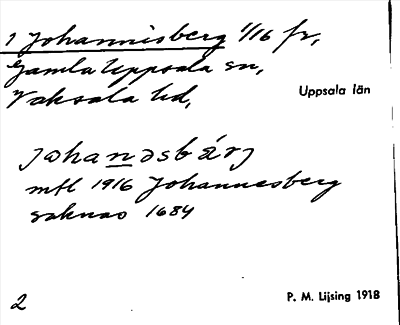 1 Johannisberg 1/16 fr,
Gamla Uppsala sn,
Vaksala hd,
Uppsala län
Johanəsbärj
mfl 1916 Johannesberg
saknas 1684
2
P. M. Lijsing 1918